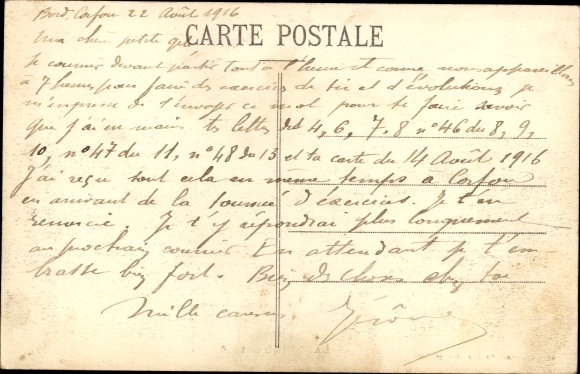 Bord, Corfou 22 Août 1916
CARTE POSTALE
Ma chère petite
le courrier devant partir tout à l'heure et comme nous appareillons
à 7 heures pour faire des exercices de tir et d'évolutions, je
m'empresse de t'envoyer ce mot pour te faire savoir
que j'ai en mains tes lettres des 4, 6, 7, 8 n° 46 du 8, 9,
10, n° 47 du 11, n° 48 du 13 et ta carte du 14 Août 1916
J'ai reçu tout cela en même temps à Corfou
en arrivant de la tournée d'exercices. Je t'en
remercie. Je t'y répondrai plus longuement
au prochain courrier. En attendant je t'em-
brasse bien fort. Bien des choses chez toi
Mille caresses Jérôme